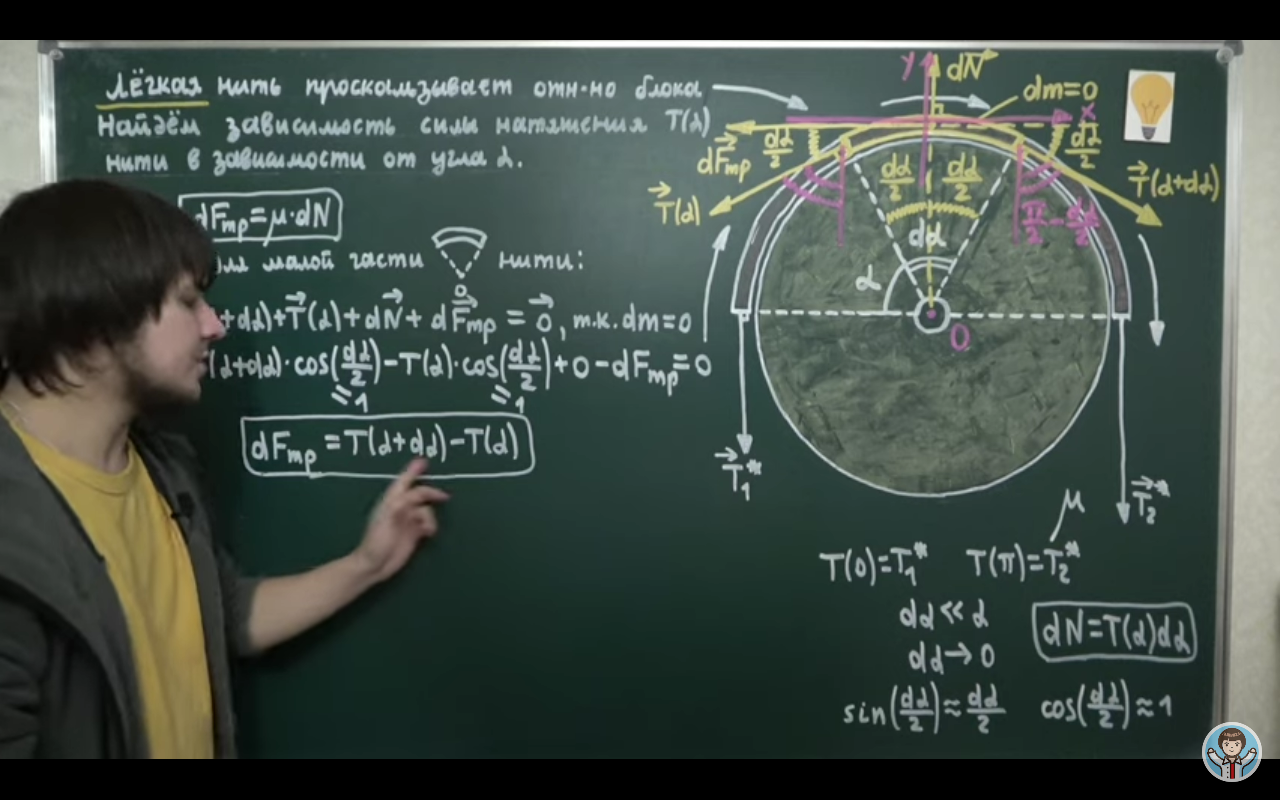 Лёгкая нить проскальзывает отн-но блока
Найдём зависимость силы натяжения T(α)
нити в зависимости от угла α.
dFтр = μ·dN
для малой части нити:
+dα)+T⃗(α)+dN⃗+dF⃗тр = 0⃗, т.к. dm=0
(α+dα)·cos(dα/2)−T(α)·cos(dα/2)+0−dFтр=0
≈1 ≈1
dFтр = T(α+dα)−T(α)
y
dN⃗
dm=0
x
dF⃗тр
dα/2
dα/2
T⃗(α)
dα/2
dα/2
T⃗(α+dα)
π/2−dα/2
dα
α
O
O
T⃗₁*
T⃗₂*
μ
T(0)=T₁* T(π)=T₂*
dα << α
dN=T(α)dα
dα→0
sin(dα/2)≈dα/2 cos(dα/2)≈1